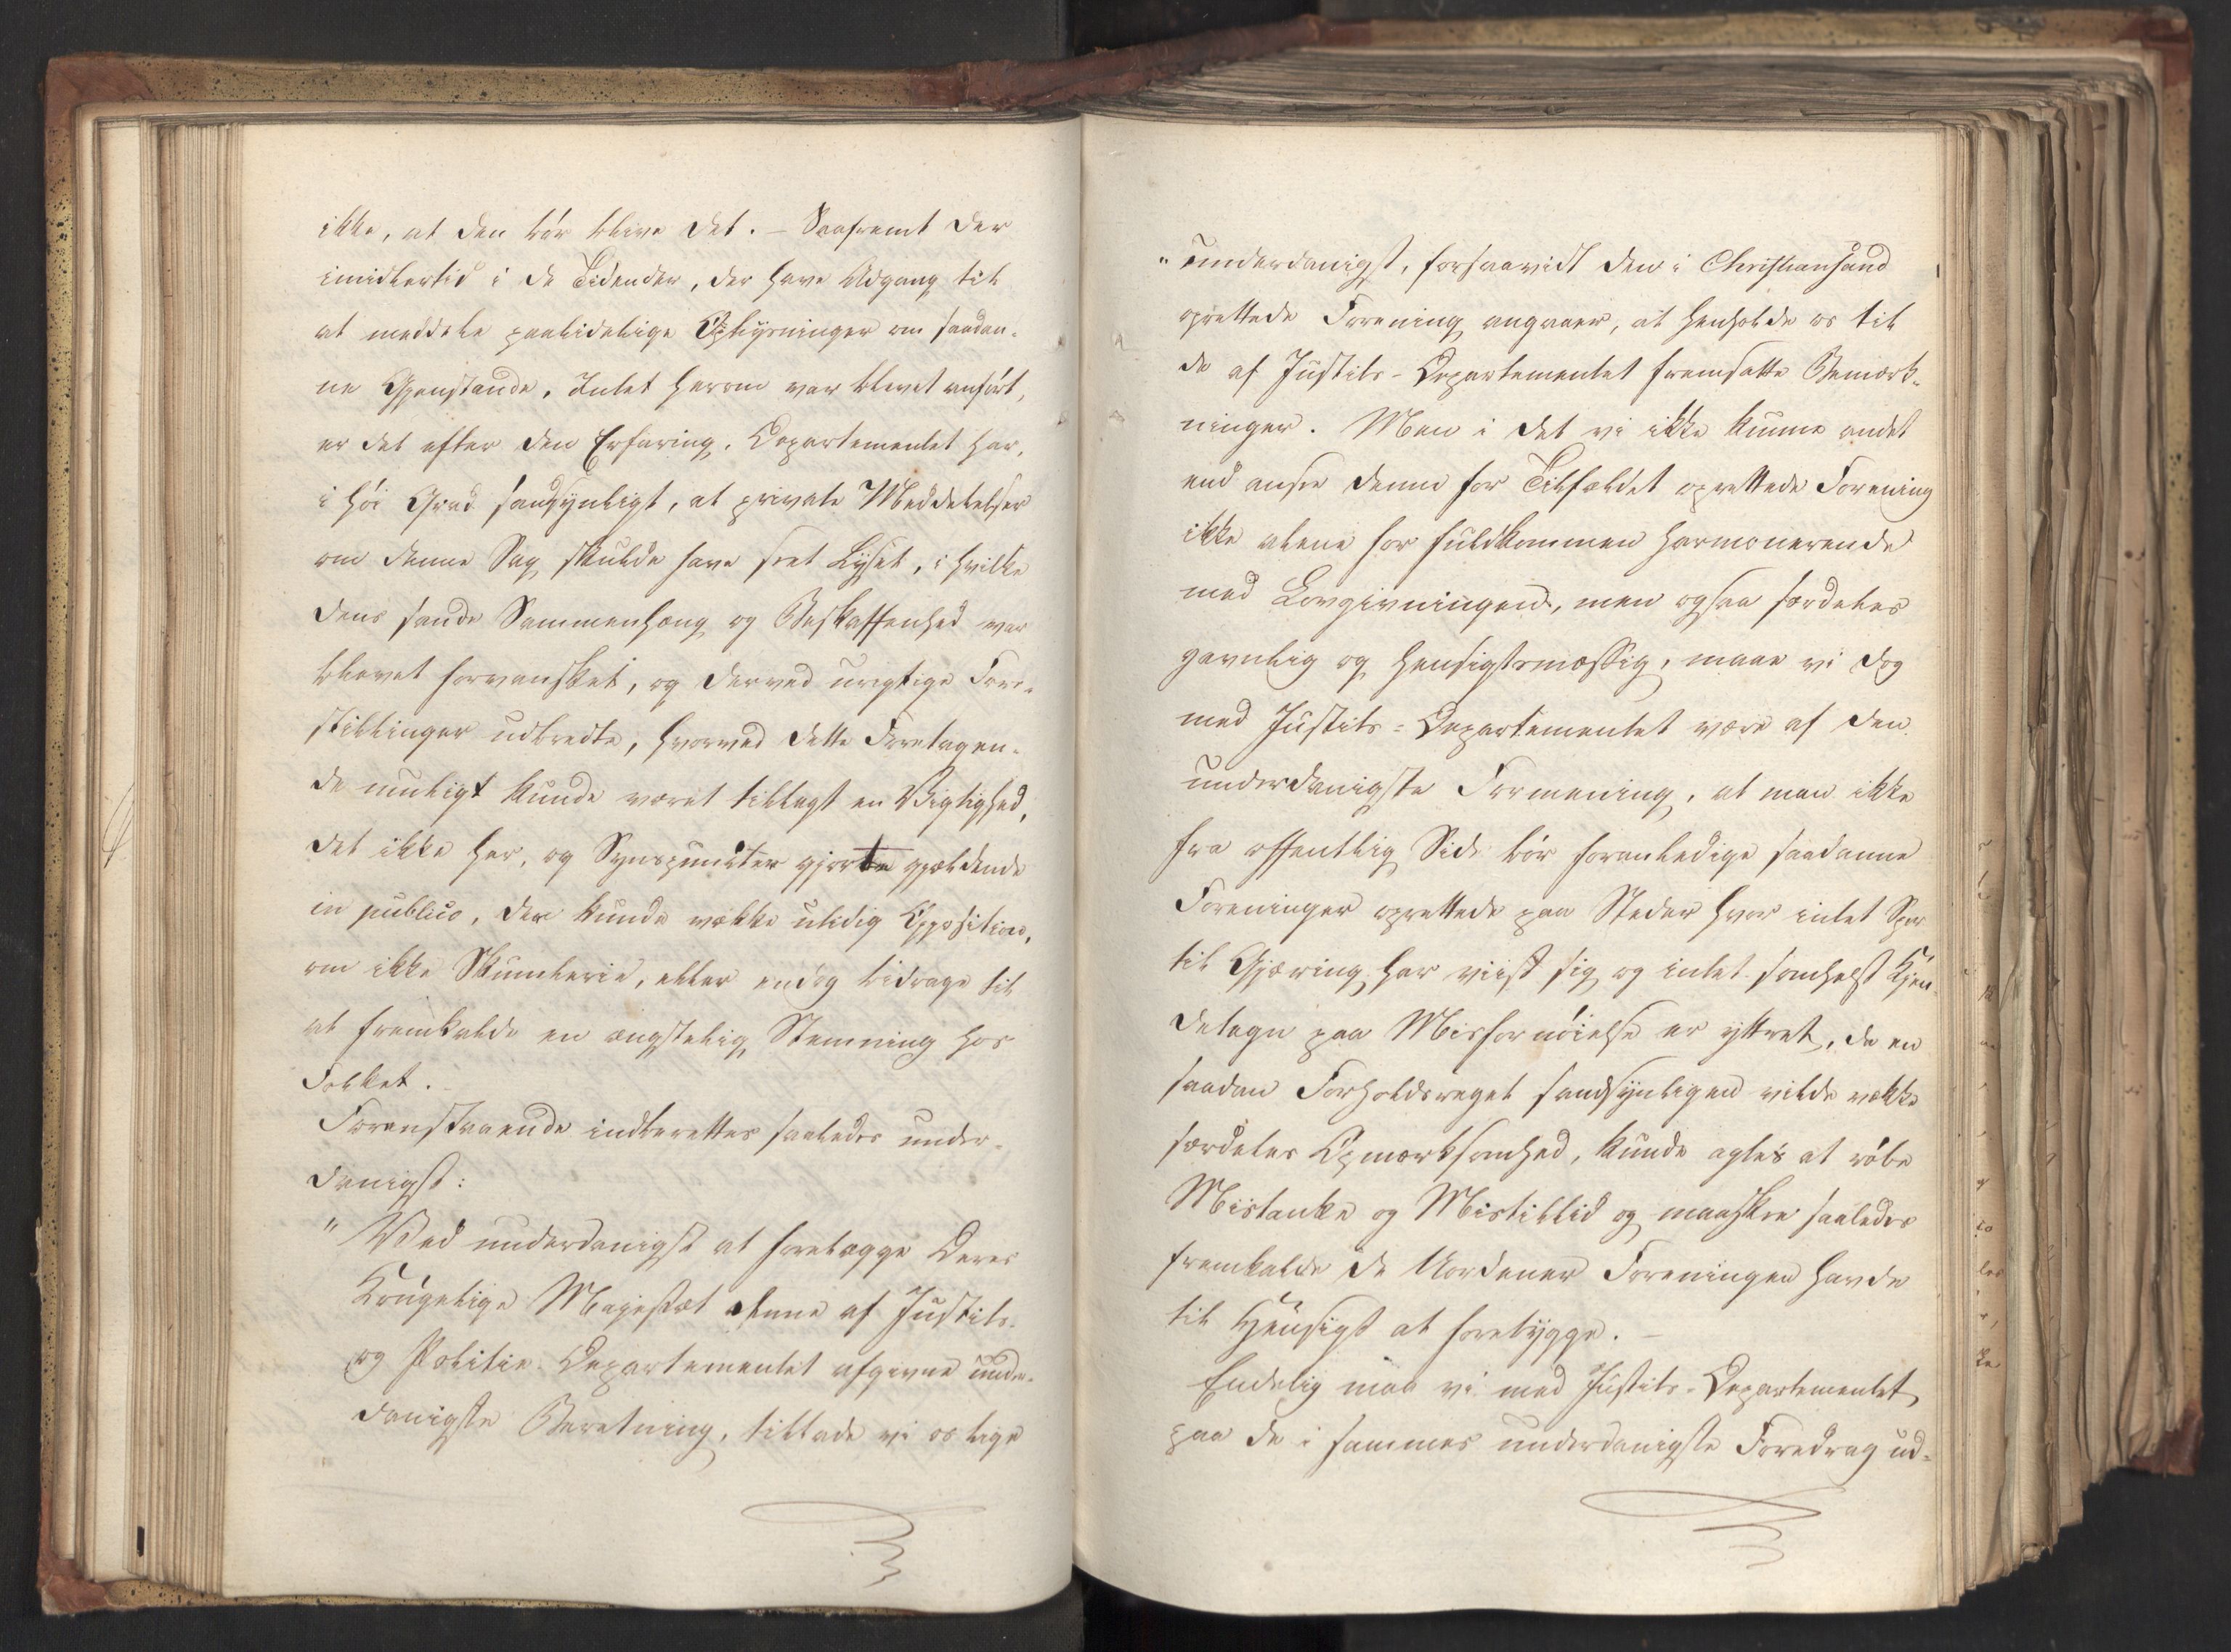 ikke, at den bör blive det. – Saafremt der
imidlertid i de Tidender, der have Adgang til
at meddele paalidelige Oplysninger om saadan-
ne Gjenstande, Intet herom var blevet anfört,
er det efter den Erfaring, Departementet har,
i höi Grad sandsynligt, at private Meddelelser
om denne Sag skulde have seet Lyset, i hvilke
dens sande Sammenhæng og Beskaffenhed var
blevet forvansket, og derved urigtige Fore-
stillinger udbredte, hvorved dette Foretagen-
de muligt kunde været tillagt en Vigtighed,
det ikke har, og Synspunkter gjorte gjældende
in publico, der kunde vække utidig Opposition,
om ikke Skumlerie, eller endog bidrage til
at fremkalde en ængstelig Stemning hos
Folket.
Foranstaaende indberettes saaledes under-
danigst:
" Ved underdanigst at forelægge Deres
Kongelige Majestæt denne af Justits-
og Politie-Departementet afgivne under-
danigste Beretning, tillade vi os lige
" underdanigst, forsaavidt den i Christiansand
oprettede Forening angaaer, at henholde os til
de af Justits-Departementet fremsatte Bemærk-
ninger. Men i det vi ikke kunne andet
end ansee denne for Tilfældet oprettede Forening
ikke alene for fuldkommen harmonerende
med Lovgivningen, men ogsaa særdeles
gavnlig og hensigtsmæssig, maae vi dog
med Justits-Departementet være af den
underdanigste Formening, at man ikke
fra offentlig Side bör foranledige saadanne
Foreninger oprettede paa Steder hvor intet Spor
til Gjæring har viist sig og intet somhelst Kjen-
detegn paa Misfornöielse er yttret, da en
saadan Forholdsregel sandsynligen vilde vække
særdeles Opmærksomhed, kunde agtes at röbe
Mistanke og Mistillid og maaskee saaledes
fremkalde de Uordener Foreningen havde
til Hensigt at forebygge. –
Endelig maa vi med Justits-Departementet,
paa de i sammes underdanigste Foredrag ud-